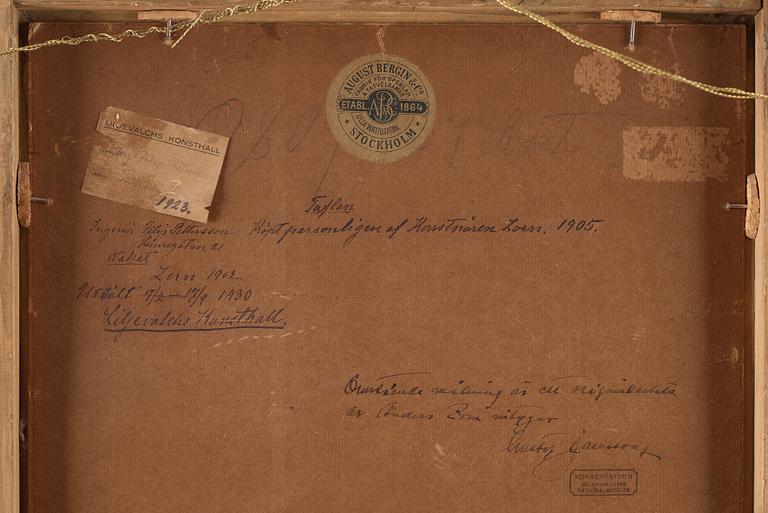 AUGUST BERGIN & Co
FABRIK FÖR SPEGLAR
& TAFVELRAMAR
ETABL. 1864
LILLA WATTUGATAN
STOCKHOLM
LILJEVALCHS KONSTHALL
1923.
Taflan
Köpt personligen af Konstnären Zorn. 1905.
Ingeniör Filip Pettersson
21
Naket
Zorn 1902
Utställt 9/2–17/9 1930
Liljevalchs Konsthall.
Ovanstående målning är ett originalarbete
av Anders Zorn intygar
Gustaf
KONSERVATORN
NATIONALMUSEUM